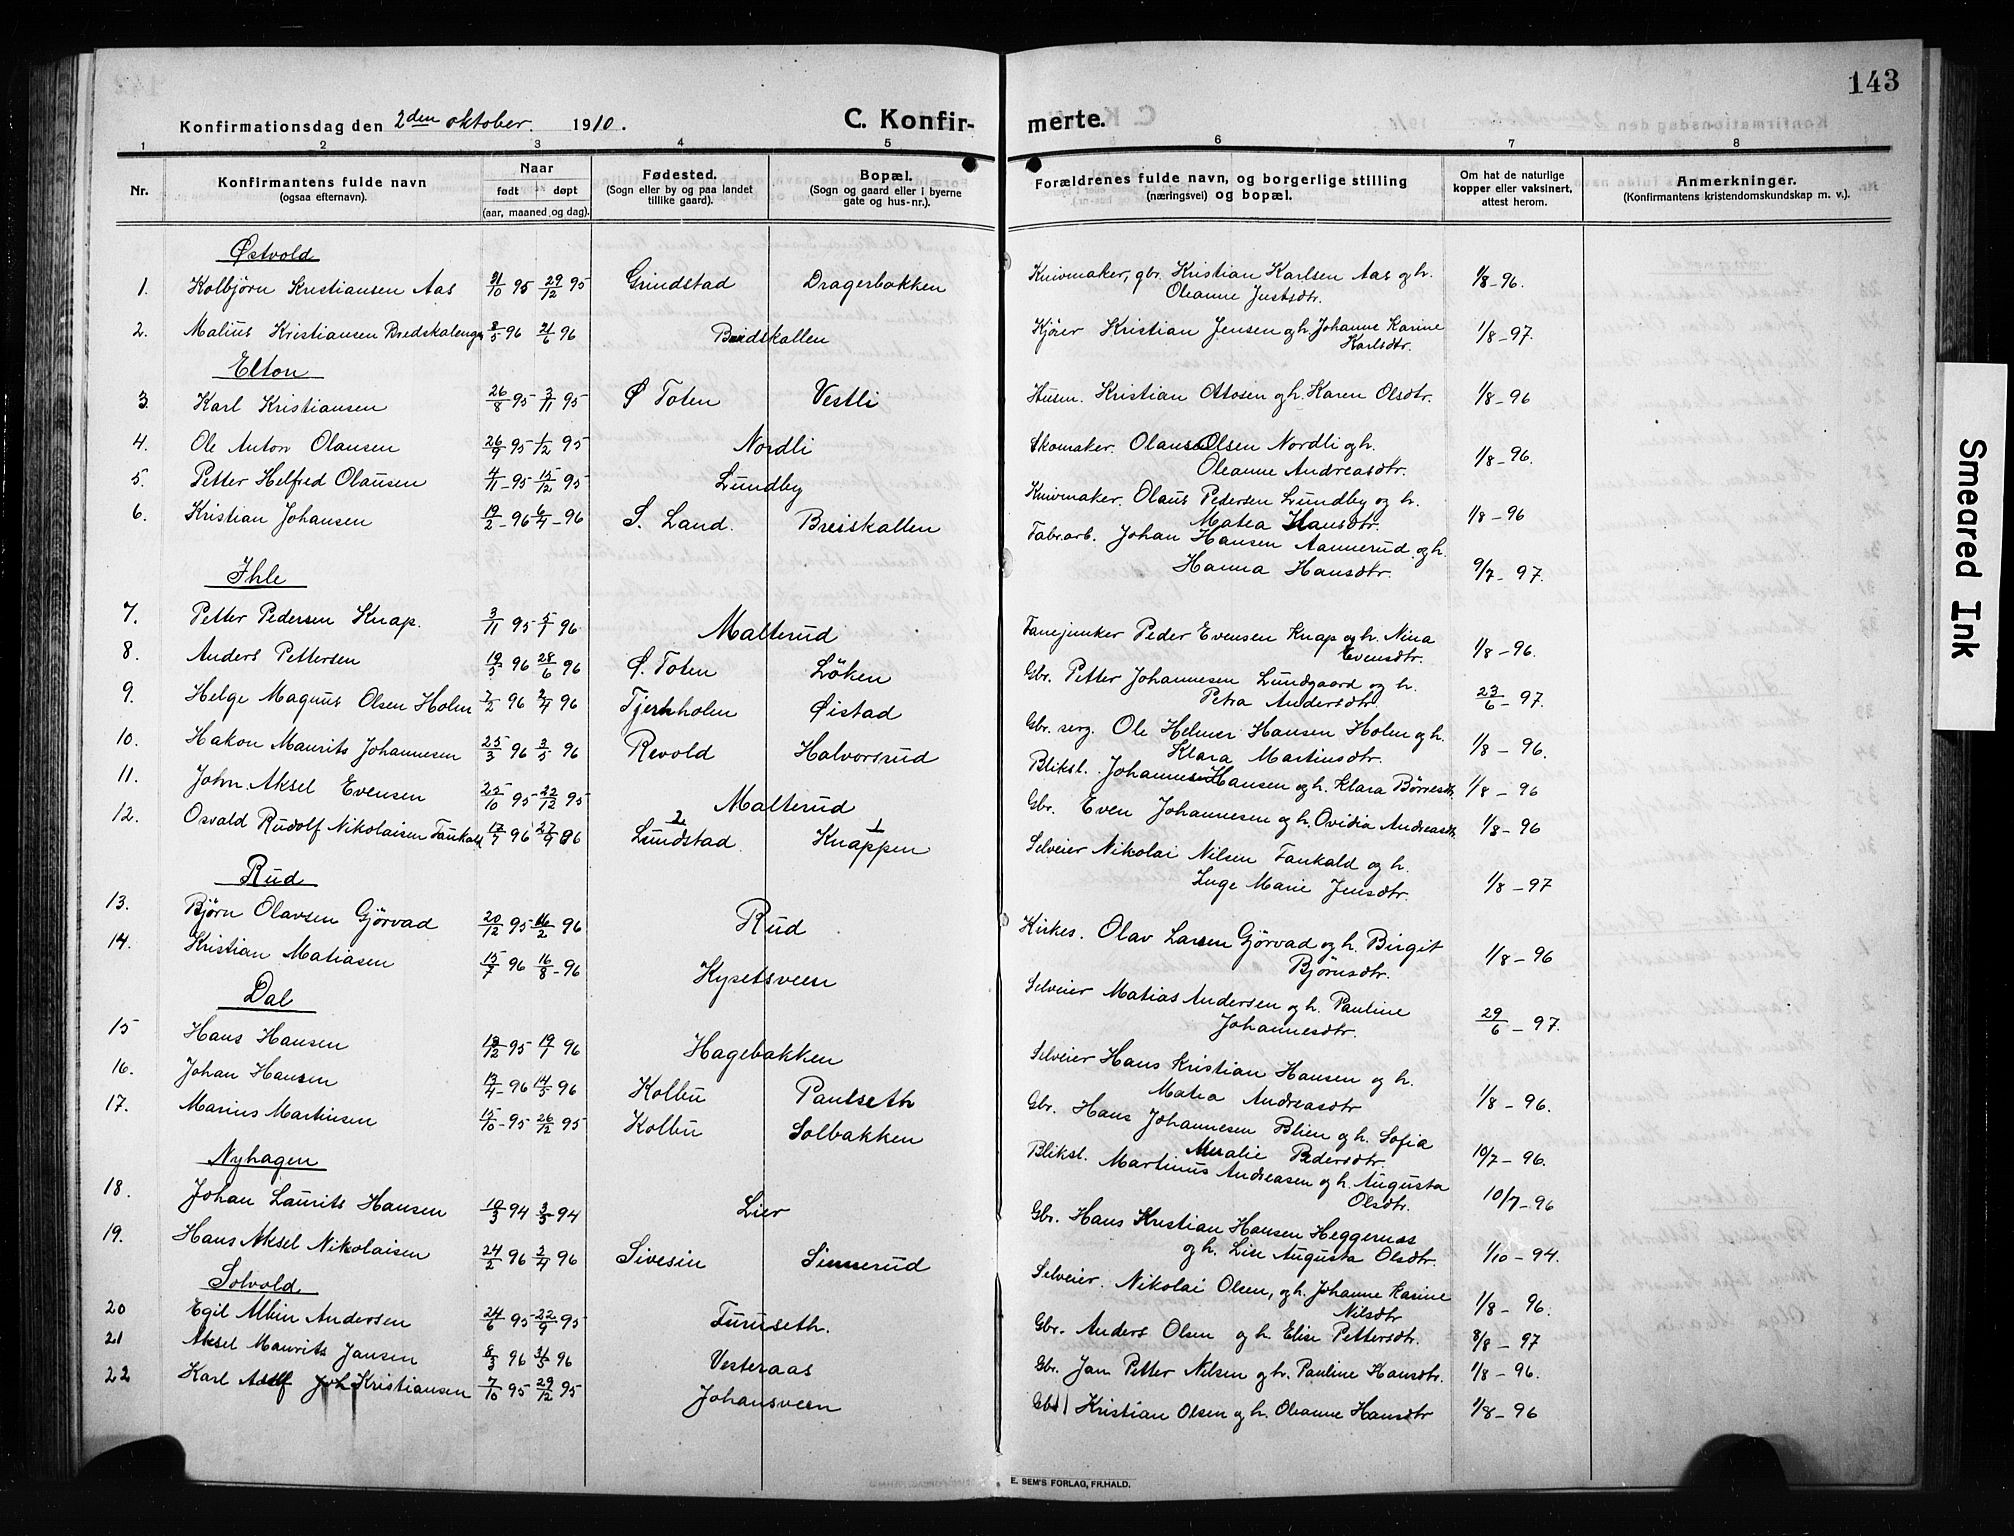 143
Konfirmationsdag den 2den oktober. 1910.
C. Konfir-
merte.
1 2 3 4 5 6 7 8
Nr.
Konfirmantens fulde navn
(ogsaa efternavn).
Naar
født døpt
(aar, maaned og dag).
Fødested.
(Sogn eller by og paa landet
tillike gaard).
Bopæl.
(Sogn og gaard eller i byerne
gate og hus-nr.).
Forældrenes fulde navn, og borgerlige stilling
(næringsvei) og bopæl.
Om hat de naturlige
kopper eller vaksinert,
attest herom.
Anmerkninger.
(Konfirmantens kristendomskundskap m. v.).
Østvold
1. Kolbjørn Kristiansen Aas 31/10 95 29/12 95 Grindstad Dragerbakken Knivmaker, gbr. Kristian Karlsen Aas og h. 1/8-96.
Oleanne Justsdtr.
2. Malius Kristiansen Bredskalengn 8/5 96 21/6 96 Breidskallen Kjører Kristian Jensen og h. Johanne Karine 1/8-97.
Karlsdtr.
Elton
3. Karl Kristiansen 26/8 95 3/11 95 Ø Toten Vestli Husm. Kristian Ottosen og h. Karen Olsdtr. 1/8-96
4. Ole Anton Olausen 26/9 95 1/12 95 Nordli Skomaker. Olaus Olsen Nordli og h.
Oleanne Andreasdtr. 1/8-96.
5. Petter Helfred Olausen 4/11-95 15/12 95 Lundby Knivmaker. Olaus Pedersen Lundby og h.
Matea Hansdtr. 1/8-96
6. Kristian Johansen 19/2-96 6/4-96 S. Land. Breiskallen Fabr.arb. Johan Hansen Aannerud og h.
Hanna Hansdtr. 9/7-97.
Ihle
7. Petter Pedersen Knap. 3/11 95 5/1 96 Malterud Fanejunker Peder Evensen Knap og h. Nina
Evensdtr. 1/8-96.
8. Anders Pettersen 19/5 96 28/6 96 Ø. Toten Löken Gbr. Petter Johannesen Lundgaard og h.
Petra Andersdtr. 23/6-97.
9. Helge Magnus Olsen Holm 7/2 96 2/4 96 Tjernholen Øistad Gbr. serg. Ole Helmer Hansen Holm og h.
Klara Martinsdtr. 1/8-96.
10. Hakon Maurits Johannesen 25/3 96 3/5 96 Revold Halvorsrud Bliksl. Johannes Hansen og h. Klara Børresdtr. 1/8-96
11. John Aksel Evensen 25/10 95 22/12 95 Malterud Gbr. Even Johannesen og h. Ovidia Andreasdtr. 1/8-96
12. Osvald Rudolf Nikolaisen Fankald 17/7 96 27/9 96 2 Lundstad 1 Knappen Selveier Nikolai Nilsen Fankald og h.
Inge Marie Jensdtr. 1/8-97
Rud
13. Bjørn Olavsen Gjörvad 20/12 95 16/2 96 Rud Kirkes. Olav Larsen Gjörvad og h. Birgit
Bjørnsdtr. 1/8-96
14. Kristian Matiasen 15/7 96 16/8-96 Kysetsveen Selveier Matias Andersen og h. Pauline
Johannesdtr. 29/6-97.
Dal
15 Hans Hansen 18/12 95 19/1 96 Hagebakken Selveier Hans Kristian Hansen og h.
Matea Andreasdtr 1/8-96.
16. Johan Hansen 13/4-96 14/5 96 Kolbu Paulseth Gbr. Hans Johannesen Blien og h. Sofia
Amalie Pedersdtr. 10/7-96.
17. Marius Martinsen 15/10-95 26/12 95 Kolbu Solbakken Bliksl. Martinus Andreasen og h. Augusta
Olsdtr. 10/7-96
Nyhagen
18. Johan Laurits Hansen 19/3 94 3/5 94 Lier Gbr. Hans Kristian Hansen Heggernæs
og h. Lise Augusta Olsdtr. 1/10-94.
19. Hans Aksel Nikolaisen 24/2 96 3/4 96 Sivesin Sinnerud Selveier. Nikolai Olsen, og h. Johanne Karine
Nilsdtr 1/8-96.
Solvold
20 Egil Albin Andersen 24/6 95 22/9 95 Furuseth. Gbr. Anders Olsen og h. Elise Pettersdtr. 8/8-97
21 Aksel Maurits Jansen 8/3 96 31/5 96 Vesteraas Gbr. Jan Petter Nilsen og h. Pauline Hansdtr. 1/8-96.
22 Karl Adolf Joh Kristiansen 7/10 95 29/12 95 Johansveen Gbr Kristian Olsen og h. Oleanne Hansdtr 1/8-96
E. SEM'S FORLAG, FR.HALD.
Smeared Ink